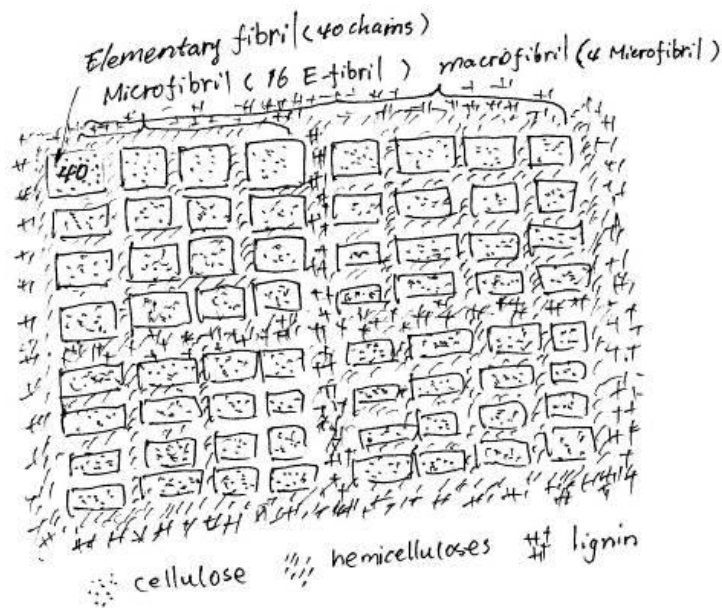 Elementary fibril (40 chains)
Microfibril (16 E-fibril) macrofibril (4 Microfibril)
40
cellulose hemicelluloses lignin